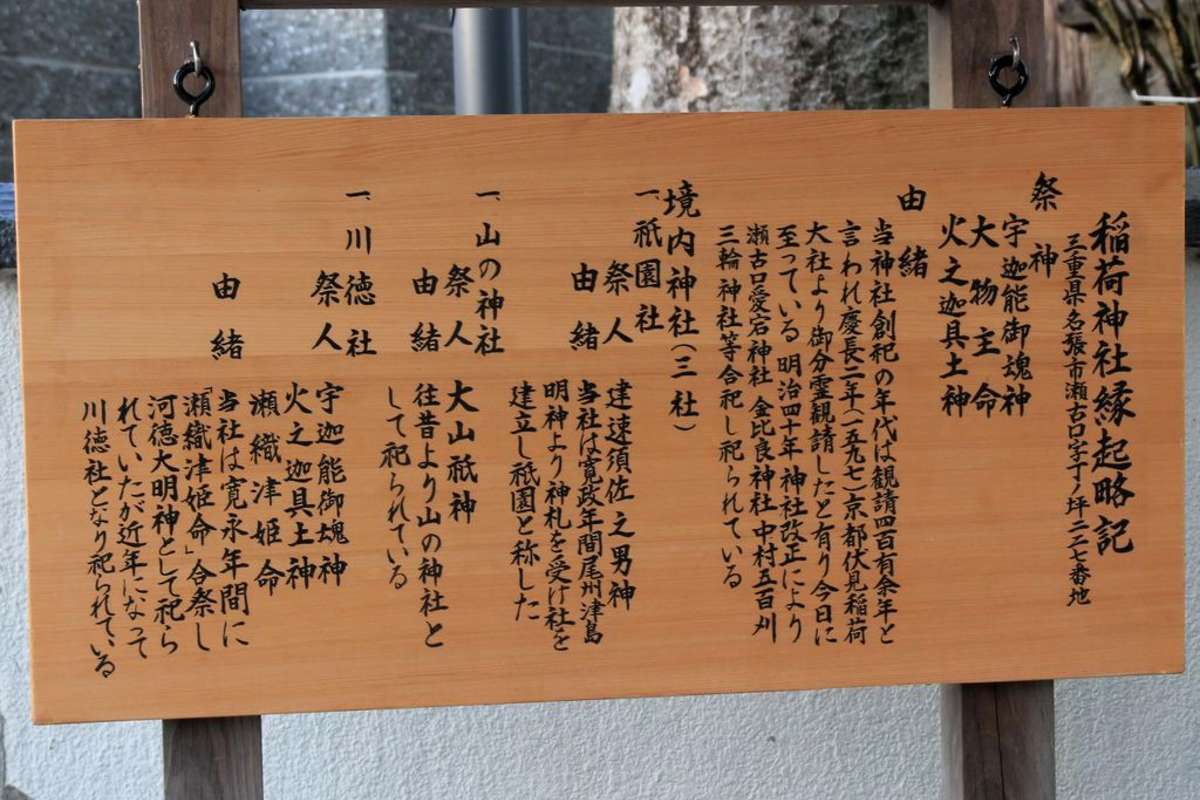 稲荷神社縁起略記
三重県名張市瀬古口字丁ノ坪二二七番地
祭神
宇迦能御魂神
大物主命
火之迦具土神
由緒
当神社創祀の年代は観請四百有余年と
言われ慶長二年(一五九七)京都伏見稲荷
大社より御分霊観請したと有り今日に
至っている 明治四十年神社改正により
瀬古口愛宕神社 金比良神社 中村五百刈
三輪神社等合祀し祀られている
境内神社(三社)
一、祇園社
祭人 建速須佐之男神
由緒 当社は寛政年間尾州津島
明神より神札を受け社を
建立し祇園と称した
一、山の神社
祭人 大山祇神
由緒 往昔より山の神社と
して祀られている
一、川徳社
祭人 宇迦能御魂神
火之迦具土神
瀬織津姫命
由緒 当社は寛永年間に
「瀬織津姫命」合祭し
河徳大明神として祀ら
れていたが近年になって
川徳社となり祀られている